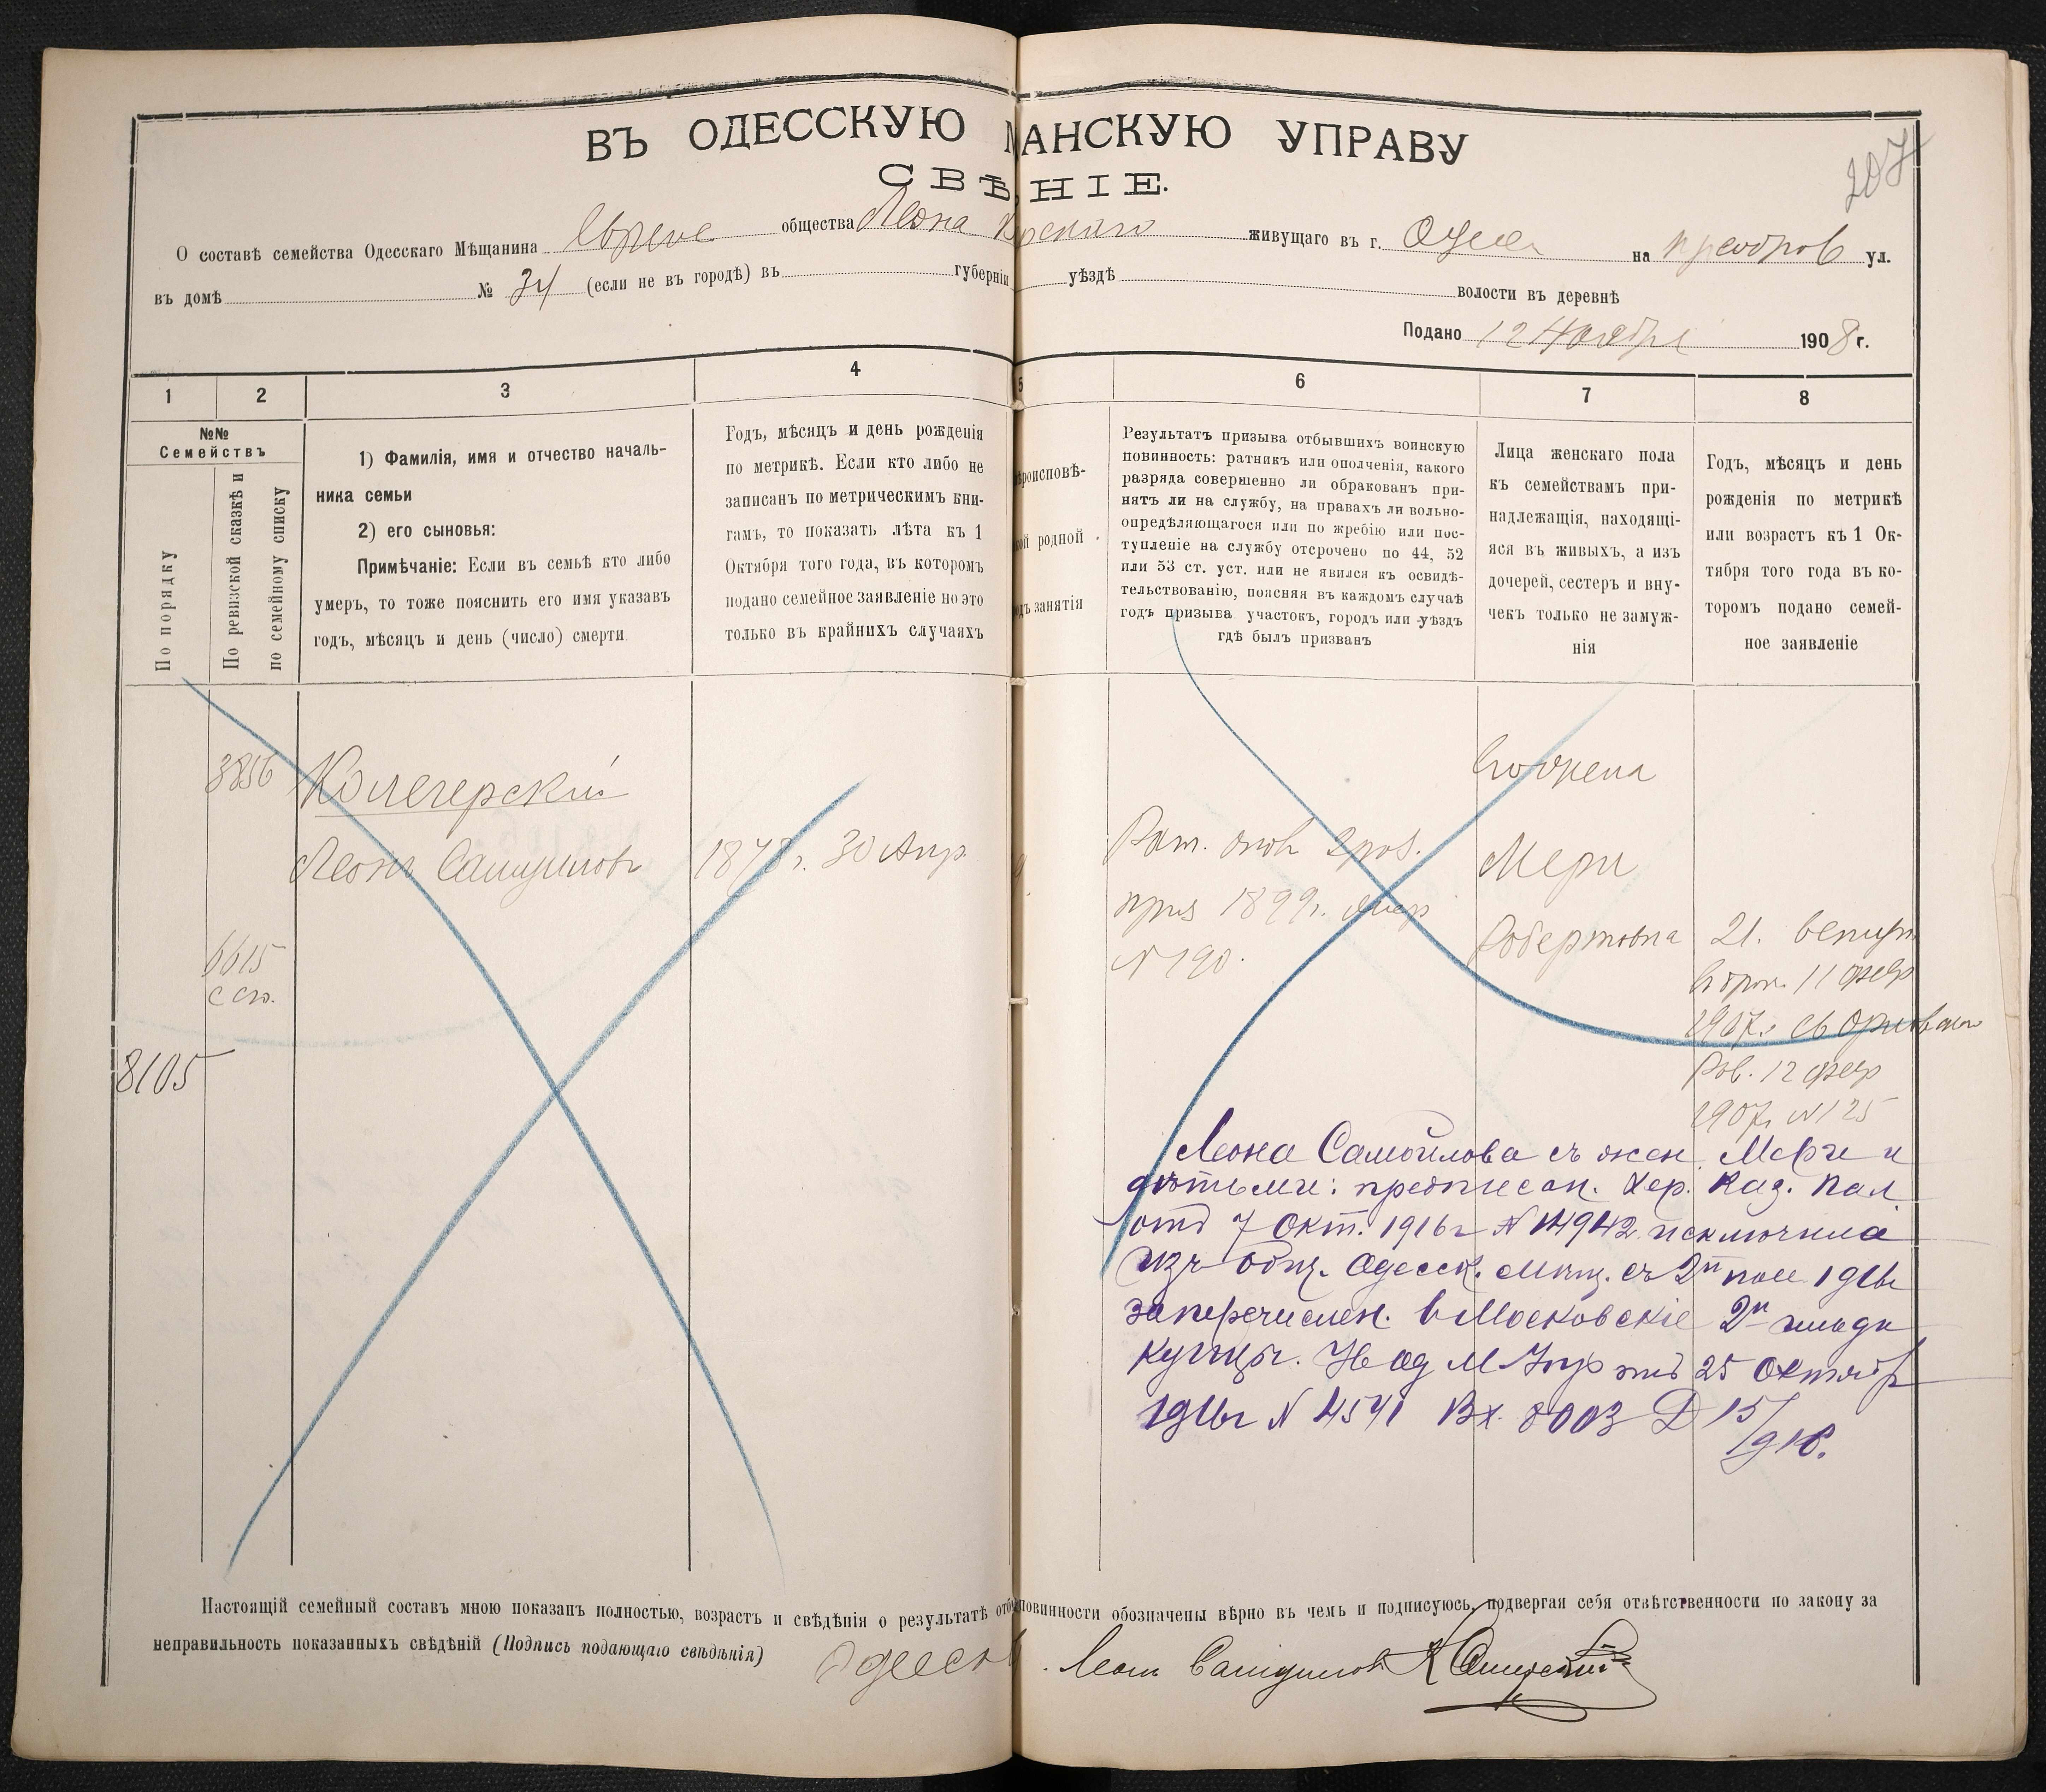 ВЪ ОДЕССКУЮ МАНСКУЮ УПРАВУ
СВѢНІЕ.
207
О составѣ семейства Одесскаго Мѣщанина Евреи общества Леона живущаго въ г. Одессѣ на преображ ул.
въ домѣ № 34 (если не въ городѣ) въ губерніи уѣздѣ волости въ деревнѣ
Подано 12 Ноября 1908 г.
1 2 3 4 5 6 7 8
№№
Семействъ
По порядку
По ревизской сказкѣ и
по семейному списку
1) Фамилія, имя и отчество началь-
ника семьи
2) его сыновья:
Примѣчаніе: Если въ семьѣ кто либо
умеръ, то тоже пояснить его имя указавъ
годъ, мѣсяцъ и день (число) смерти.
Годъ, мѣсяцъ и день рожденія
по метрикѣ. Если кто либо не
записанъ по метрическимъ кни-
гамъ, то показать лѣта къ 1
Октября того года, въ которомъ
подано семейное заявленіе но это
только въ крайнихъ случаяхъ
ѣроисповѣ-
кой родной
одъ занятія
Результатъ призыва отбывшихъ воинскую
повинность: ратникъ или ополченія, какого
разряда совершенно ли обракованъ при-
нятъ ли на службу, на правахъ ли вольно-
опредѣляющагося или по жребію или пос-
тупленіе на службу отсрочено по 44, 52
или 53 ст. уст. или не явился къ освидѣ-
тельствованію, поясняя въ каждомъ случаѣ
годъ призыва участокъ, городъ или уѣздъ
гдѣ былъ призванъ
Лица женскаго пола
къ семействамъ при-
надлежащія, находящі-
яся въ живыхъ, а изъ
дочерей, сестеръ и вну-
чекъ только не замуж-
нія
Годъ, мѣсяцъ и день
рожденія по метрикѣ
или возрастъ къ 1 Ок-
тября того года въ ко-
торомъ подано семей-
ное заявленіе
3856
Его жена
Леонъ Самуиловъ 1878 г. 30 Апр.
Рат. опол 2 раз.
Мери
приз 1899 г.
Робертовна 21.
N 190.
6615
с сп.
11 февр
1907 г. съ
8105
Рав. 12 февр
1907 г. N 125
Леона Самойлова съ жен. Мери и
дѣтьми: предписан. Хер. Каз. Пал
отъ 7 Окт. 1916 г N 14942 исключила
изъ общ. Одесск. Мѣщ. съ 2й пол 1916 г
за перечислен. въ Московскіе 2й гильди
купцы. Од М Упр отъ 25 Октябр
1916 г N 4541 Вх. 8003 Д 15/916.
Настоящій семейный составъ мною показанъ полностью, возрастъ и свѣдѣнія о результатѣ отбы повинности обозначены вѣрно въ чемъ и подписуюсь, подвергая себя отвѣтственности по закону за
неправильность показанныхъ свѣдѣній (Подпись подающаго свѣдѣнія) Одесск. Леонъ Самуиловъ